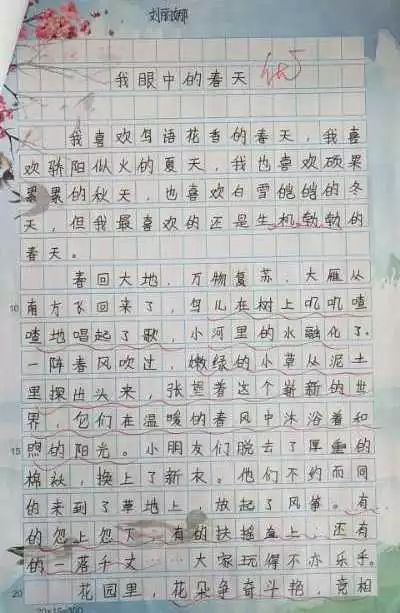 刘丽娜
我眼中的春天 优
我喜欢鸟语花香的春天，我喜
欢骄阳似火的夏天，我也喜欢硕果
累累的秋天，也喜欢白雪皑皑的冬
天，但我最喜欢的还是生机勃勃的
春天。
春回大地，万物复苏，大雁从
10 南方飞回来了，鸟儿在树上叽叽喳
喳地唱起了歌，小河里的水融化了。
一阵春风吹过，嫩绿的小草从泥土
里探出头来，张望着这个崭新的世
界，它们在温暖的春风中沐浴着和
15 煦的阳光。小朋友们脱去了厚重的
棉袄，换上了新衣。他们不约而同
的来到了草地上，放起了风筝。有
的忽上忽下 有的扶摇直上 还有
的一落千丈……大家玩得不亦乐乎。
20 花园里，花朵争奇斗艳，竞相
20×15=300